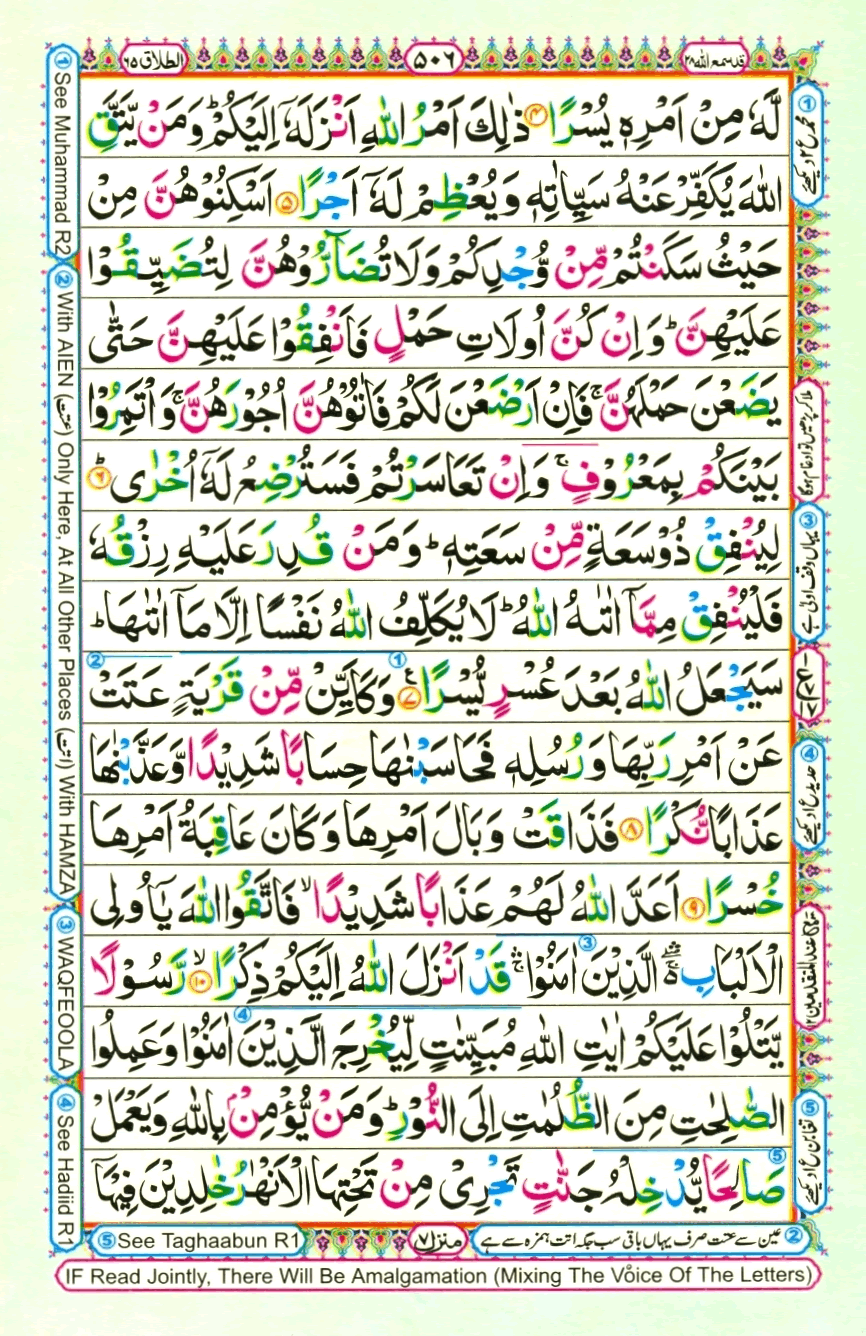 قد سمع الله ٢٨
٥٠٦
الطلاق ٦٥
لَّهٗ مِنْ اَمْرِهٖ یُسْرًا ۝۴ ذٰلِكَ اَمْرُ اللّٰهِ اَنْزَلَهٗۤ اِلَیْكُمْ ؕ وَ مَنْ یَّتَّقِ
اللّٰهَ یُكَفِّرْ عَنْهُ سَیِّاٰتِهٖ وَ یُعْظِمْ لَهٗۤ اَجْرًا ۝۵ اَسْكِنُوْهُنَّ مِنْ
حَیْثُ سَكَنْتُمْ مِّنْ وُّجْدِكُمْ وَ لَا تُضَآرُّوْهُنَّ لِتُضَیِّقُوْا
عَلَیْهِنَّ ؕ وَ اِنْ كُنَّ اُولَاتِ حَمْلٍ فَاَنْفِقُوْا عَلَیْهِنَّ حَتّٰی
یَضَعْنَ حَمْلَهُنَّ ۚ فَاِنْ اَرْضَعْنَ لَكُمْ فَاٰتُوْهُنَّ اُجُوْرَهُنَّ ۚ وَ اْتَمِرُوْا
بَیْنَكُمْ بِمَعْرُوْفٍ ۚ وَ اِنْ تَعَاسَرْتُمْ فَسَتُرْضِعُ لَهٗۤ اُخْرٰی ۝۶
لِیُنْفِقْ ذُوْ سَعَةٍ مِّنْ سَعَتِهٖ ؕ وَ مَنْ قُدِرَ عَلَیْهِ رِزْقُهٗ
فَلْیُنْفِقْ مِمَّاۤ اٰتٰىهُ اللّٰهُ ؕ لَا یُكَلِّفُ اللّٰهُ نَفْسًا اِلَّا مَاۤ اٰتٰىهَا ؕ
سَیَجْعَلُ اللّٰهُ بَعْدَ عُسْرٍ یُّسْرًا ۝۷ وَ كَاَیِّنْ مِّنْ قَرْیَةٍ عَتَتْ
عَنْ اَمْرِ رَبِّهَا وَ رُسُلِهٖ فَحَاسَبْنٰهَا حِسَابًا شَدِیْدًا وَّ عَذَّبْنٰهَا
عَذَابًا نُّكْرًا ۝۸ فَذَاقَتْ وَبَالَ اَمْرِهَا وَ كَانَ عَاقِبَةُ اَمْرِهَا
خُسْرًا ۝۹ اَعَدَّ اللّٰهُ لَهُمْ عَذَابًا شَدِیْدًا ۙ فَاتَّقُوا اللّٰهَ یٰۤاُولِی
الْاَلْبَابِ ۛ۬ۚ الَّذِیْنَ اٰمَنُوْا ۛ۫ قَدْ اَنْزَلَ اللّٰهُ اِلَیْكُمْ ذِكْرًا ۝۱۰ۙ رَّسُوْلًا
یَّتْلُوْا عَلَیْكُمْ اٰیٰتِ اللّٰهِ مُبَیِّنٰتٍ لِّیُخْرِجَ الَّذِیْنَ اٰمَنُوْا وَ عَمِلُوا
الصّٰلِحٰتِ مِنَ الظُّلُمٰتِ اِلَی النُّوْرِ ؕ وَ مَنْ یُّؤْمِنْۢ بِاللّٰهِ وَ یَعْمَلْ
صَالِحًا یُّدْخِلْهُ جَنّٰتٍ تَجْرِیْ مِنْ تَحْتِهَا الْاَنْهٰرُ خٰلِدِیْنَ فِیْهَاۤ
① محمد ع ٢ دیکھئے
ملا کر پڑھیں تو ادغام ہوگا
③ یہاں وقف اولیٰ ہے
④ حدید ع ١ دیکھئے
⑤ تغابن ع ١ دیکھئے
① See Muhammad R2
② With AIEN (عتت) Only Here, At All Other Places (اتت) With HAMZA
③ WAQFEOOLA
④ See Hadiid R1
② عین سے عتت صرف یہاں باقی سب جگہ اتت ہمزہ سے ہے
منزل ٧
⑤ See Taghaabun R1
IF Read Jointly, There Will Be Amalgamation (Mixing The Voice Of The Letters)